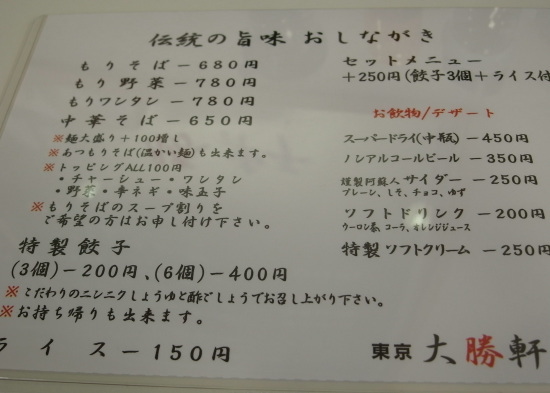 伝統の旨味 おしながき
もりそば－680円
もり野菜－780円
もりワンタン－780円
中華そば－650円
※麺大盛り＋100増し
※あつもりそば(温かい麺)も出来ます。
※トッピングALL100円
・チャーシュー・ワンタン
・野菜・辛ネギ・味玉子
※もりそばのスープ割りを
ご希望の方はお申し付け下さい。
特製餃子
(3個)－200円、(6個)－400円
※こだわりのニンニクしょうゆと酢こしょうでお召し上がり下さい。
※お持ち帰りも出来ます。
ライス－150円
セットメニュー
＋250円(餃子3個＋ライス付
お飲物/デザート
スーパードライ(中瓶)－450円
ノンアルコールビール－350円
謹製阿蘇人サイダー－250円
プレーン、しそ、チョコ、ゆず
ソフトドリンク－200円
ウーロン茶、コーラ、オレンジジュース
特製ソフトクリーム－250円
東京 大勝軒